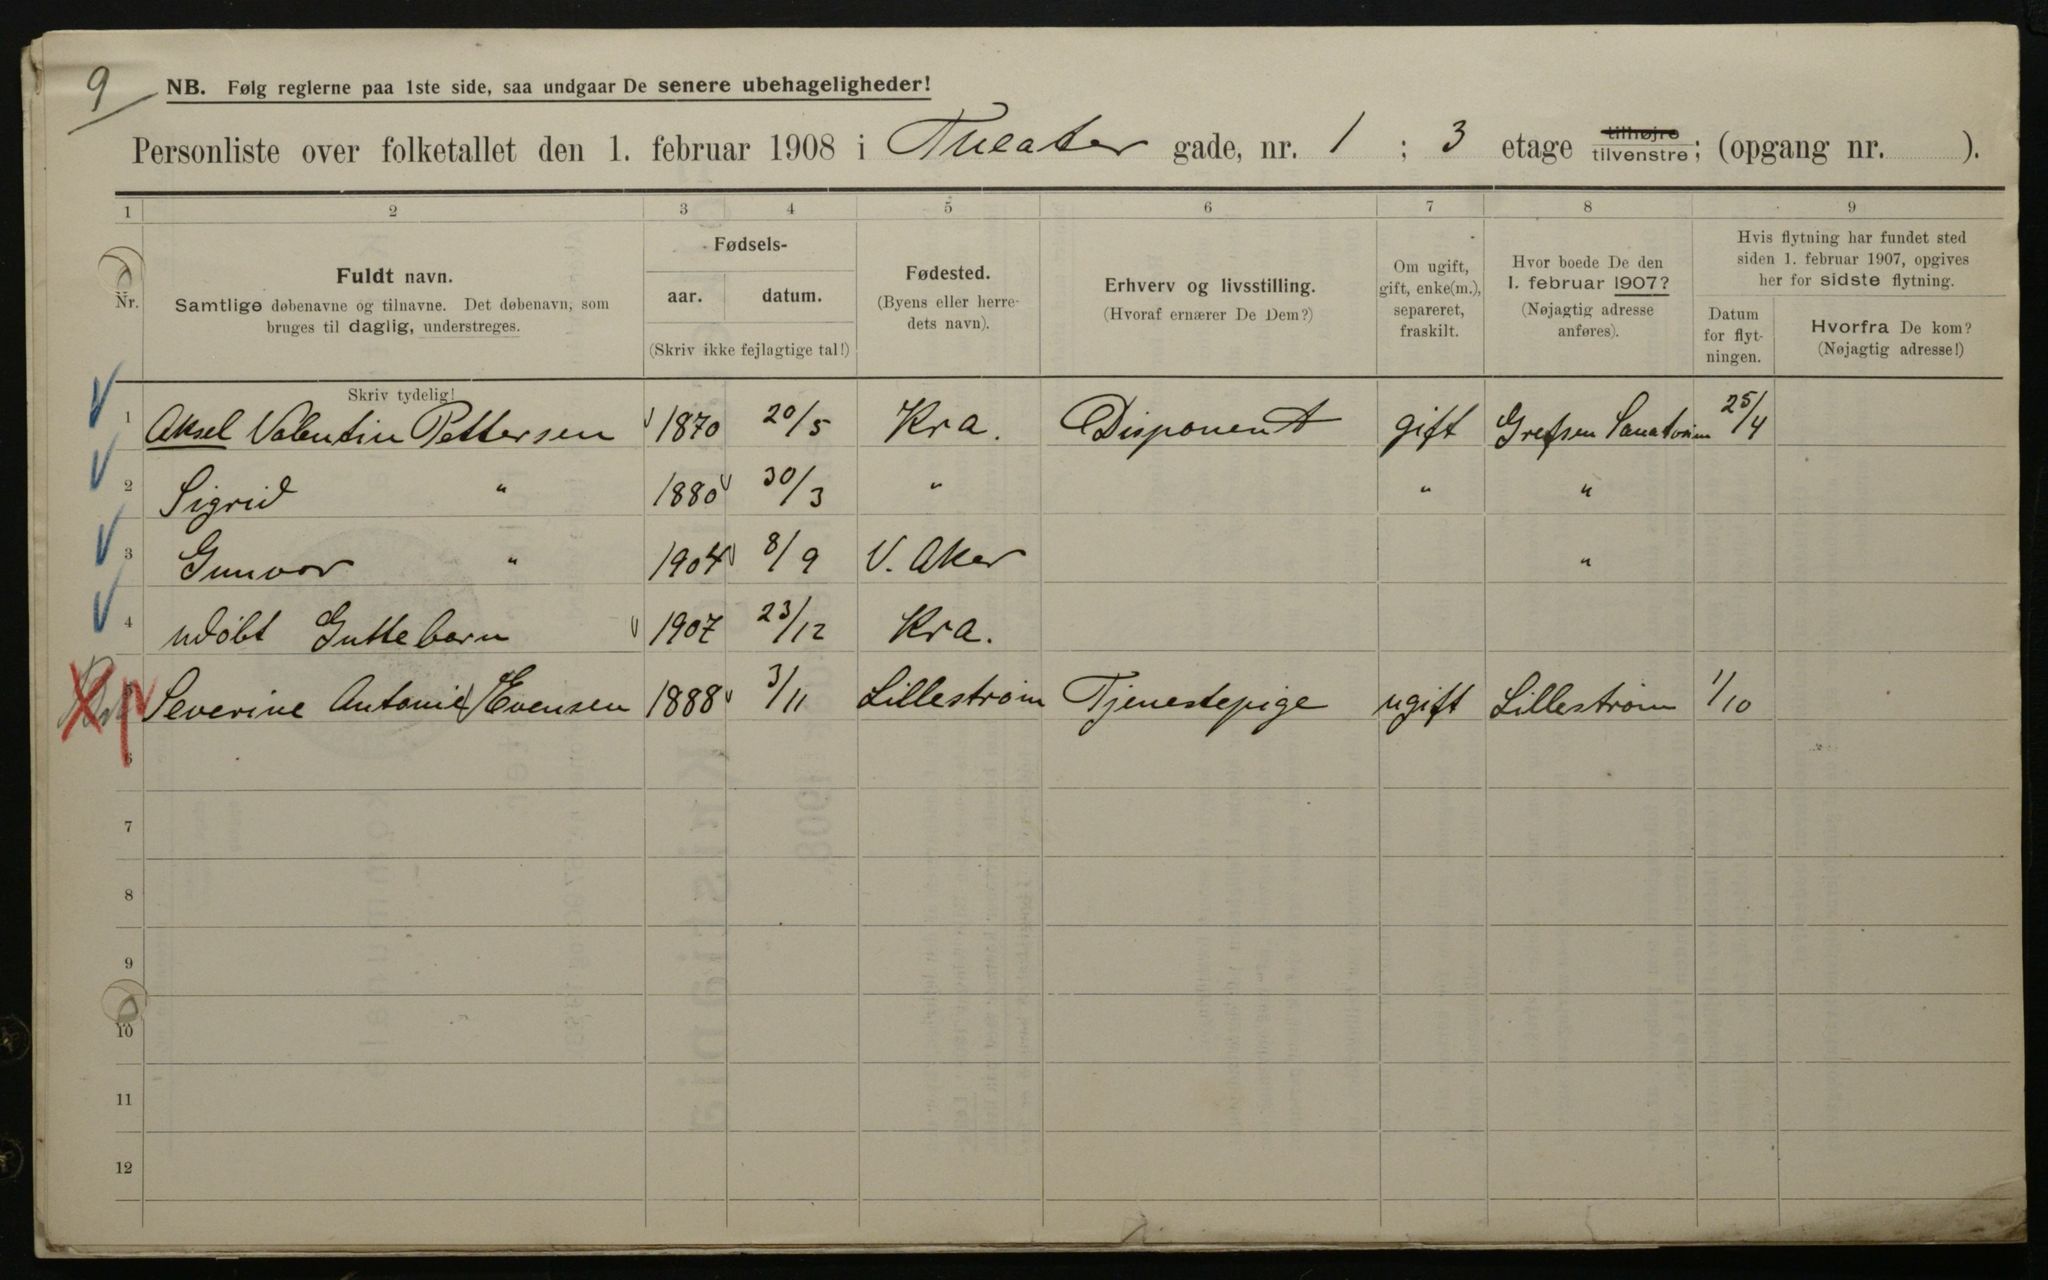 9
NB. Følg reglerne paa 1ste side, saa undgaar De senere ubehageligheder!
Personliste over folketallet den 1. februar 1908 i Theater gade, nr. 1 ; 3 etage tilhøjre tilvenstre; (opgang nr. ).
1 2 3 4 5 6 7 8 9
Nr.
Fuldt navn.
Samtlige døbenavne og tilnavne. Det døbenavn, som
bruges til daglig, understreges.
Skriv tydelig!
Fødsels-
aar. datum.
(Skriv ikke fejlagtige tal!)
Fødested.
(Byens eller herre-
dets navn).
Erhverv og livsstilling.
(Hvoraf ernærer De Dem?)
Om ugift,
gift, enke(m.),
separeret,
fraskilt.
Hvor boede De den
1. februar 1907?
(Nøjagtig adresse
anføres).
Hvis flytning har fundet sted
siden 1. februar 1907, opgives
her for sidste flytning.
Datum
for flyt-
ningen.
Hvorfra De kom?
(Nøjagtig adresse!)
1 Aksel Valentin Pettersen 1870 20/5 Kra. Disponent gift Grefsen Sanatorium 25/4
2 Sigrid " 1880 30/3 " " "
3 Gunvor " 1904 8/9 V. Aker "
4 udøbt Guttebarn 1907 23/12 Kra.
5 Severine Antonie Evensen 1888 3/11 Lillestrøm Tjenestepige ugift Lillestrøm 1/10
6
7
8
9
10
11
12